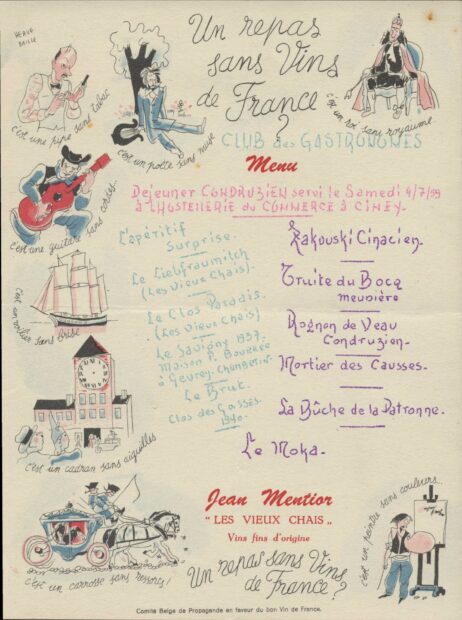 HERVÉ
BAILLE
Un repas
sans Vins
de France
?
c'est une pipe sans tabac
c'est un poète sans muse
c'est un roi sans royaume
CLUB des GASTRONOMES
Menu
Déjeuner CONDRUZIEN servi le Samedi 4/7/59
à L'HOSTELLERIE du COMMERCE à CINEY.
c'est une guitare sans cordes.
L'apéritif
Surprise.
Le Liebfraumilch
(Les Vieux Chais).
Le Clos Paradis.
(Les Vieux Chais)
Le Savigny 1937.
Maison P. Bourrée
à Gevrey-Chambertin.
Le Brut.
Clos des Gasses.
Zakouski Cinacien.
Truite du Bocq
meunière
Rognon de Veau
Condruzien.
Mortier des Causses.
La Bûche de la Patronne.
Le Moka.
c'est un voilier sans brise
c'est un cadran sans aiguilles
c'est un carrosse sans ressorts!
Jean Mentior
"LES VIEUX CHAIS"
Vins fins d'origine
Un repas sans Vins
de France?
c'est un peintre sans couleurs.
Comité Belge de Propagande en faveur du bon Vin de France.